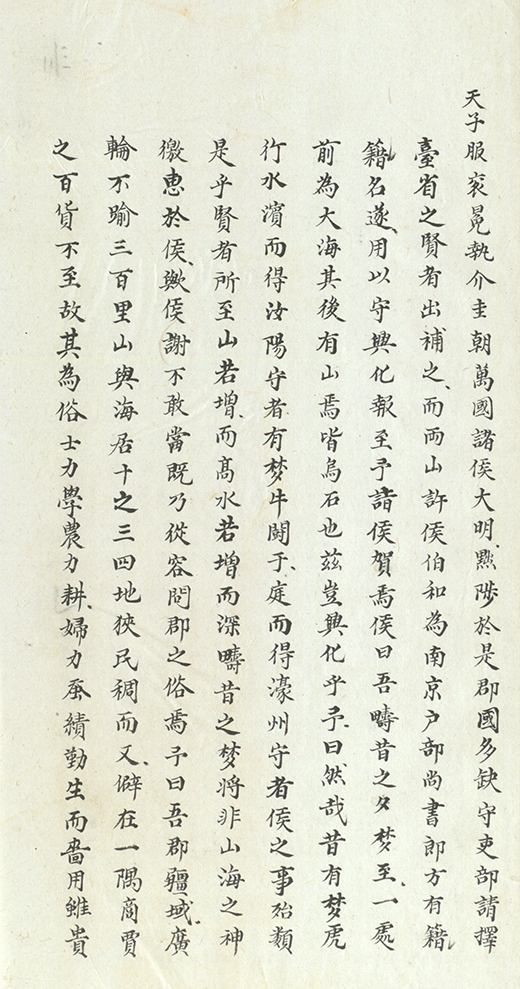 天子服袞冕執介圭朝萬國諸侯大明黜陟於是郡國多缺守吏部請擇
臺省之賢者出補之而両山許侯伯和為南京户部尚書郎方有籍
籍名遂用以守興化報至予諸侯賀焉侯曰吾疇昔之夕梦至一處
前為大海其後有山焉皆烏石也茲豈興化乎予曰然哉昔有梦虎
行水濱而得汝陽守者有梦牛鬪于庭而得濠州守者侯之事殆類
是乎賢者所至山若增而髙水若增而深疇昔之梦将非山海之神
徼惠於侯歟侯謝不敢當既乃從容問郡之俗焉予曰吾郡疆域廣
輪不踰三百里山與海居十之三四地狹民稠而又僻在一隅商賈
之百貨不至故其為俗士力學農力耕婦力蚕績勤生而嗇用雖貴